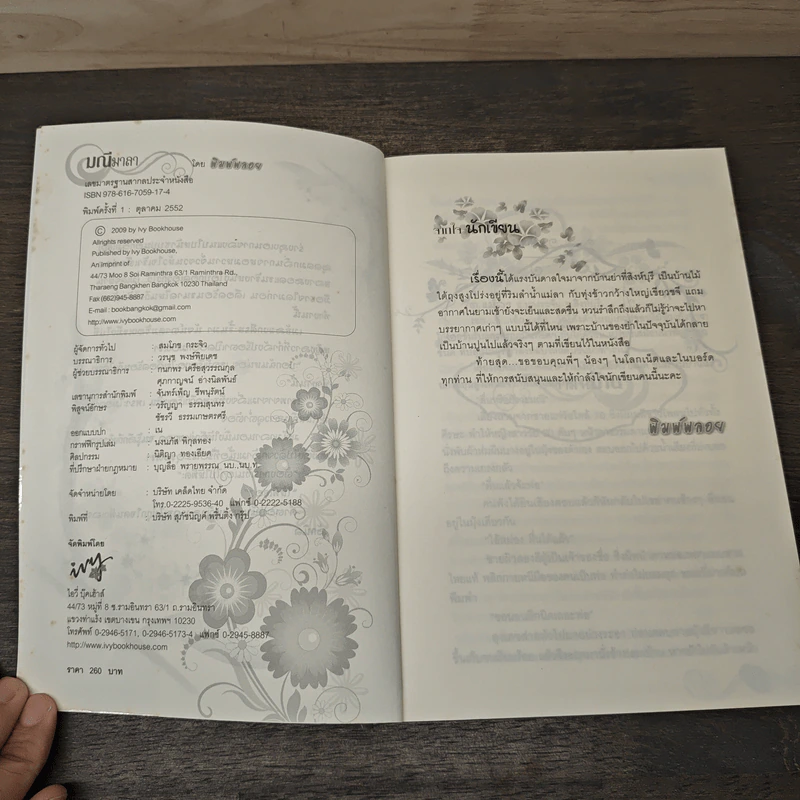 มณีมาลา โดย พิมพ์พลอย
เลขมาตรฐานสากลประจำหนังสือ
ISBN 978-616-7059-17-4
พิมพ์ครั้งที่ 1 : ตุลาคม 2552
© 2009 by Ivy Bookhouse
Allrights reserved
Published by Ivy Bookhouse,
An imprint of
44/73 Moo 8 Soi Raminthra 63/1 Ramintra Rd.,
Tharaeng Bangkhen Bangkok 10230 Thailand
Fax (662)945-8887
E-mail : bookbangkok@gmail.com
http://www.ivybookhouse.com
ผู้จัดการทั่วไป : สมโภช กระจิว
บรรณาธิการ : วรนุช พงษ์พิยเดช
ผู้ช่วยบรรณาธิการ : กนกพร เครือสุวรรณกุล
ศุภกาญจน์ อ่างนิลพันธ์
เลขานุการสำนักพิมพ์ : จันทร์เพ็ญ ชีพนุรัตน์
พิสูจน์อักษร : วรัญญา ธรรมสุนทร
ชัชรวี ธรรมเกษตรศรี
ออกแบบปก : เน
กราฟฟิกรูปเล่ม : นงนภัส พิกุลทอง
ศิลปกรรม : นิติญา ทองเอียด
ที่ปรึกษาฝ่ายกฎหมาย : บุญลือ พรายพรรณ นบ.,นบ.ท
จัดจำหน่ายโดย : บริษัท เคล็ดไทย จำกัด
โทร.0-2225-9536-40 แฟกซ์ 0-2222-5188
พิมพ์ที่ : บริษัท สุภัชนิญค์ พริ้นติ้ง กรุ๊ป
จัดพิมพ์โดย
ivy
ไอวี่ บุ๊คเฮ้าส์
44/73 หมู่ที่ 8 ซ.รามอินทรา 63/1 ถ.รามอินทรา
แขวงท่าแร้ง เขตบางเขน กรุงเทพฯ 10230
โทรศัพท์ 0-2946-5171, 0-2946-5173-4 แฟกซ์ 0-2945-8887
http://www.ivybookhouse.com
ราคา 260 บาท
นักเขียน
เรื่องนี้ได้แรงบันดาลใจมาจากบ้านย่าที่สิงห์บุรี เป็นบ้านไม้
ใต้ถุงสูงโปร่งอยู่ที่ริมลำน้ำแม่ลา กับทุ่งข้าวกว้างใหญ่เขียวขจี แถม
อากาศในยามเช้ายังจะเย็นและสดชื่น หวนรำลึกถึงแล้วก็ไม่รู้ว่าจะไปหา
บรรยากาศเก่าๆ แบบนี้ได้ที่ไหน เพราะบ้านของย่าในปัจจุบันได้กลาย
เป็นบ้านปูนไปแล้วจริงๆ ตามที่เขียนไว้ในหนังสือ
ท้ายสุด...ขอขอบคุณพี่ๆ น้องๆ ในโลกเน็ตและในบอร์ด
ทุกท่าน ที่ให้การสนับสนุนและให้กำลังใจนักเขียนคนนี้นะคะ
พิมพ์พลอย